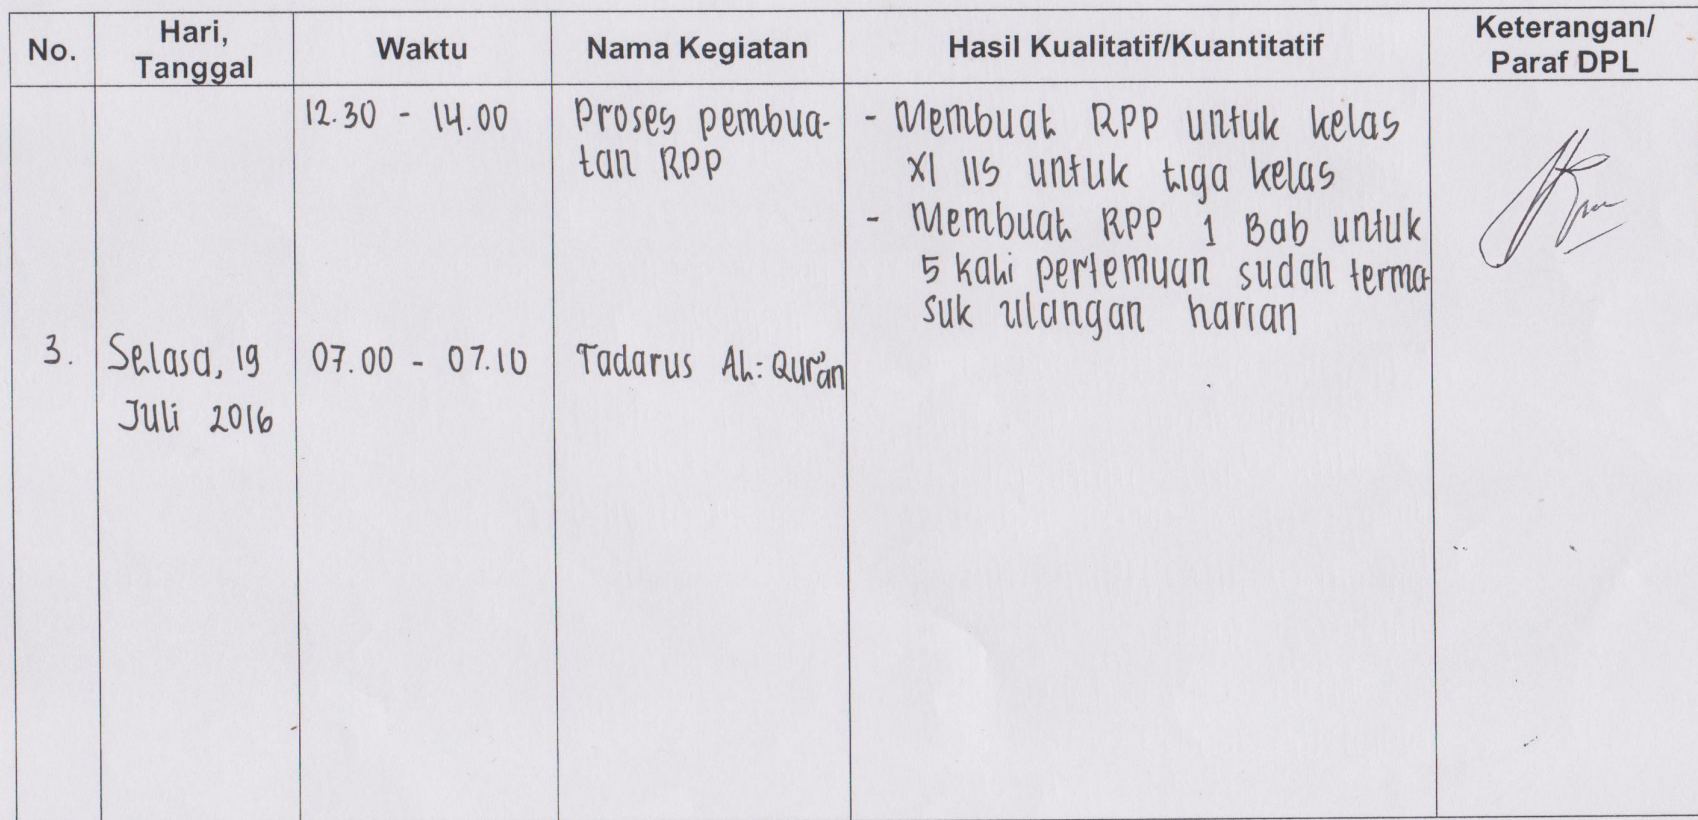 No.
Hari,
Tanggal
Waktu
Nama Kegiatan
Hasil Kualitatif/Kuantitatif
Keterangan/
Paraf DPL
12.30 - 14.00
Proses pembua-
tan RPP
- Membuat RPP untuk kelas
XI IIS untuk tiga kelas
- Membuat RPP 1 Bab untuk
5 kali pertemuan sudah terma-
suk ulangan harian
3.
Selasa, 19
Juli 2016
07.00 - 07.10
Tadarus Al-Qur'an